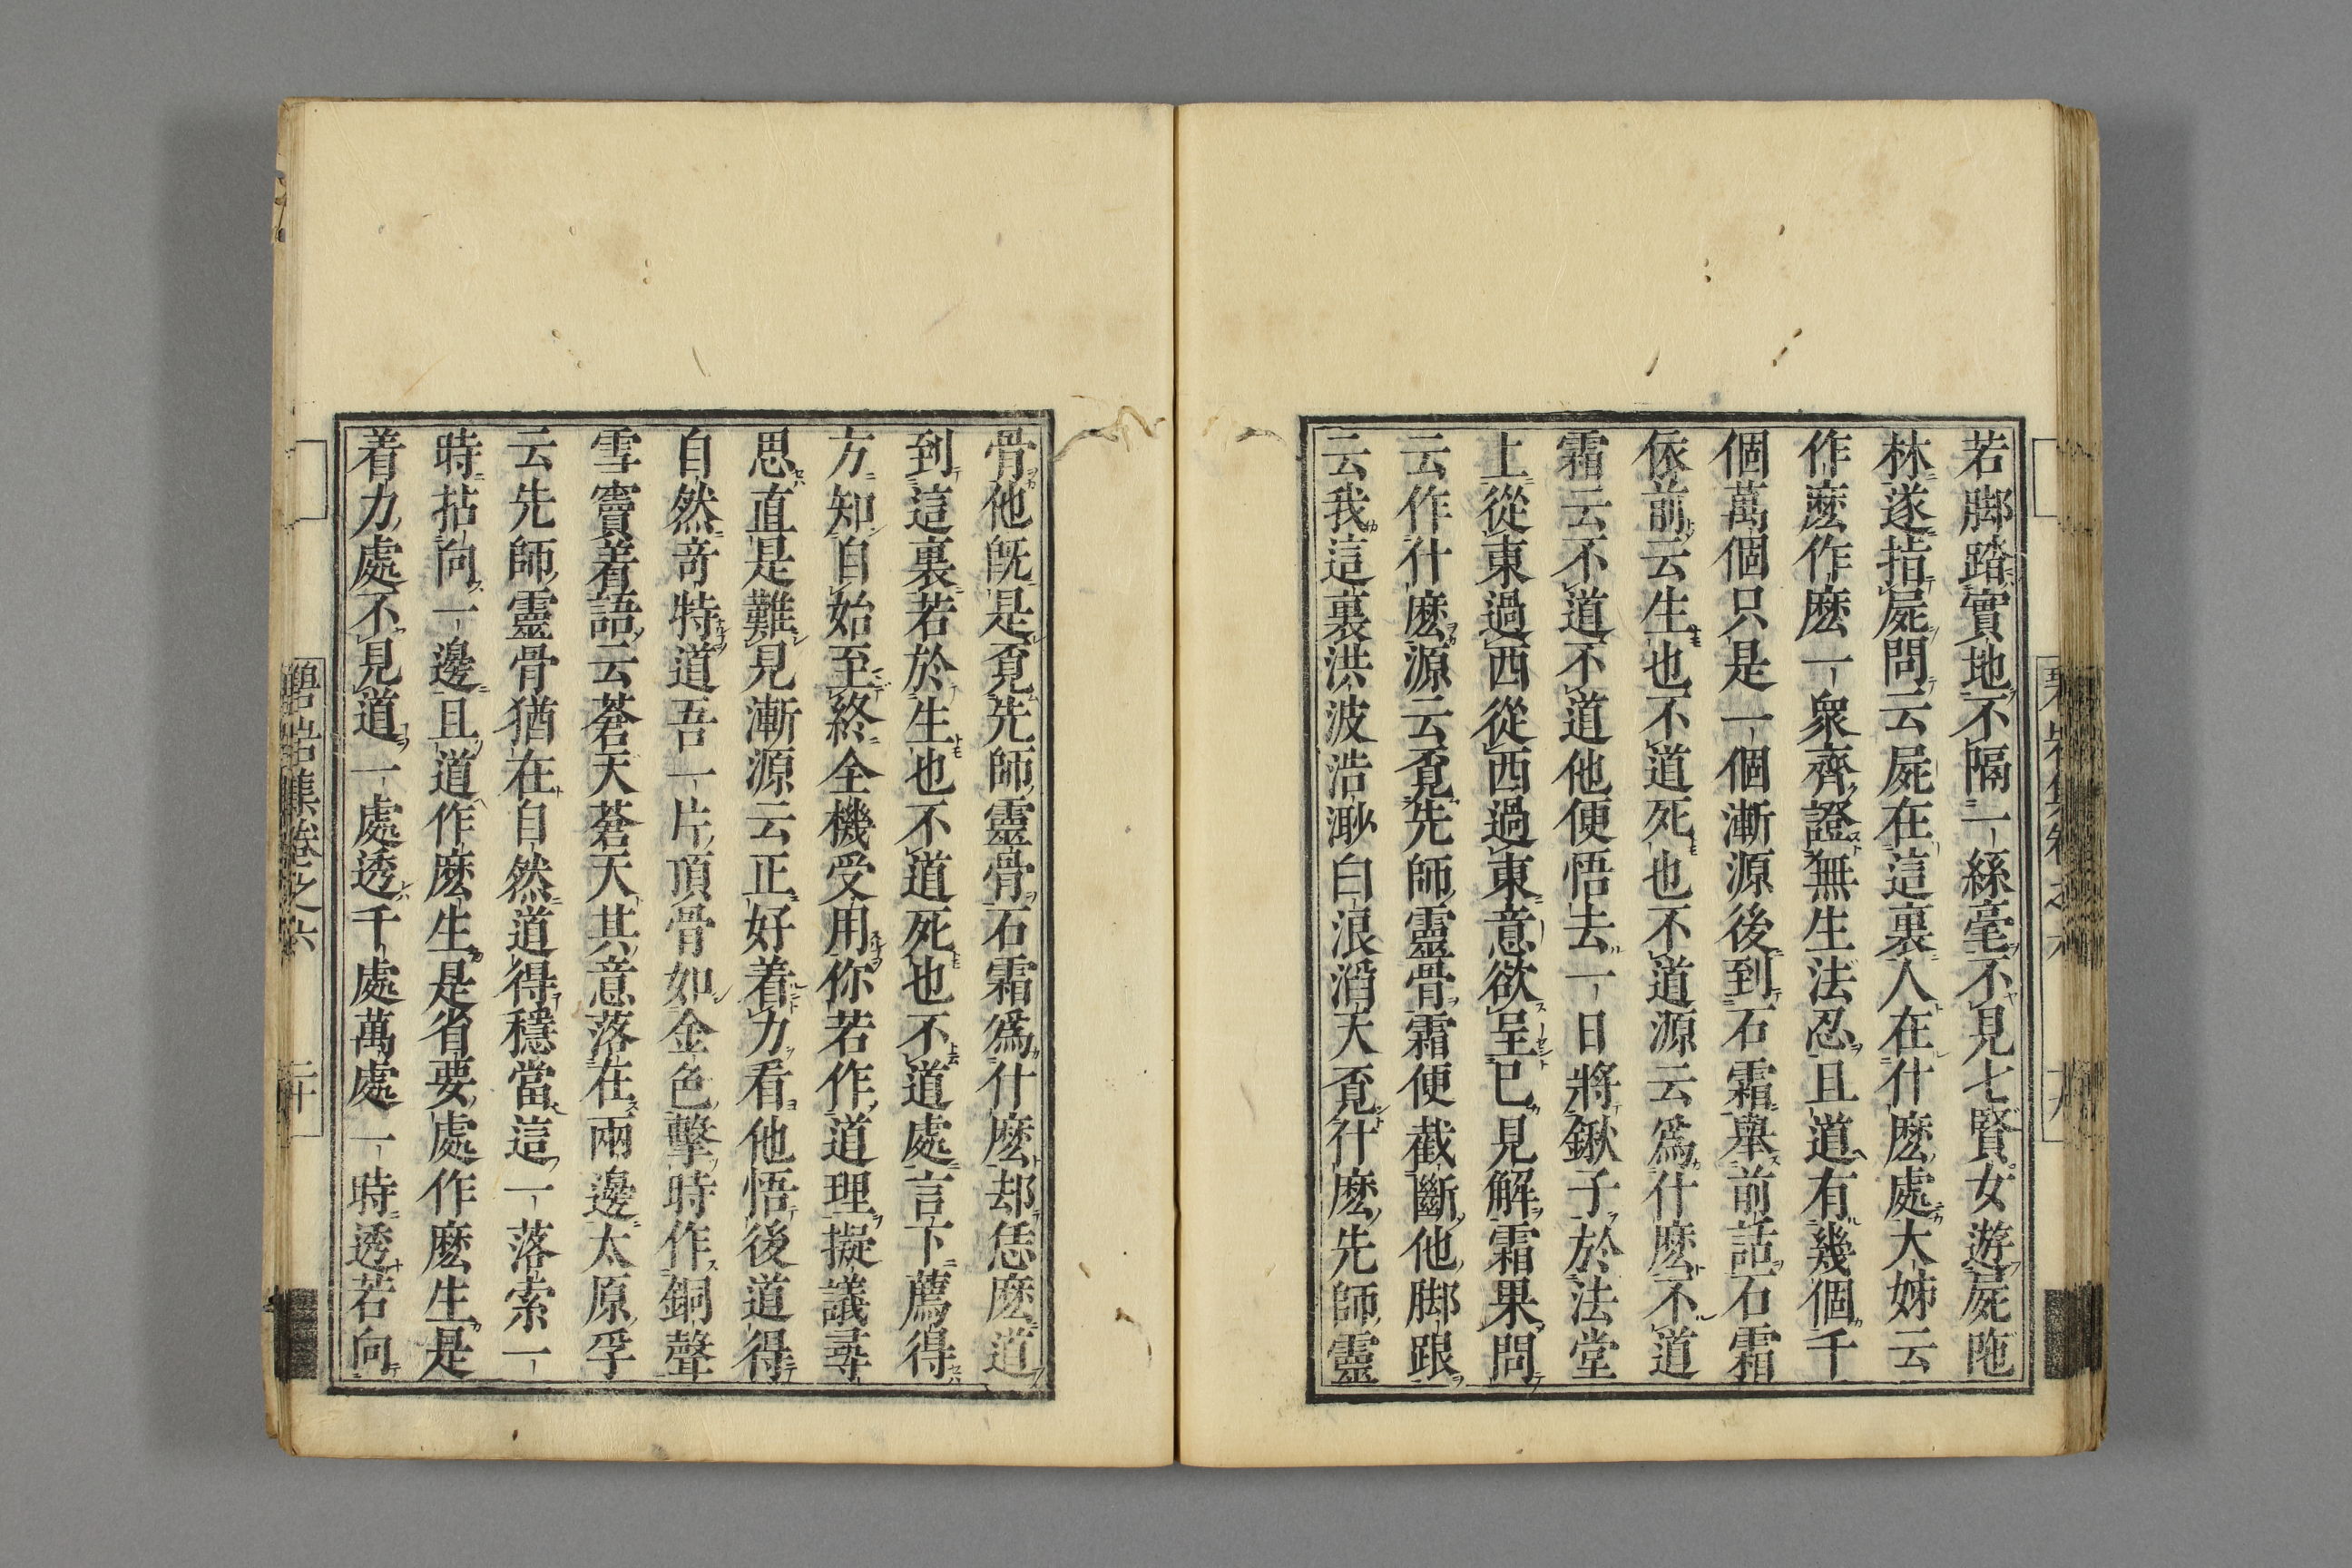 若脚踏實地不隔一絲毫不見七賢女遊屍陁
林遂指屍問云屍在這裏人在什麽處大姊云
作麽作麽一衆齊證無生法忍且道有幾個千
個萬個只是一個漸源後到石霜舉前話石霜
依前云生也不道死也不道源云爲什麽不道
霜云不道不道他便悟去一日將鍬子於法堂
上從東過西從西過東意欲呈已見解霜果問
云作什麽源云覔先師靈骨霜便截斷他脚跟
云我這裏洪波浩渺白浪滔天覔什麽先師靈
骨他旣是覔先師靈骨石霜爲什麽却恁麽道
到這裏若於生也不道死也不道處言下薦得
方知自始至終全機受用你若作道理擬議尋
思直是難見漸源云正好着力看他悟後道得
自然竒特道吾一片頂骨如金色擊時作銅聲
雪竇着語云蒼天蒼天其意落在兩邊太原孚
云先師靈骨猶在自然道得穩當這一落索一
時拈向一邊且道作麽生是省要處作麽生是
着力處不見道一處透千處萬處一時透若向
碧岩集卷之六 二十